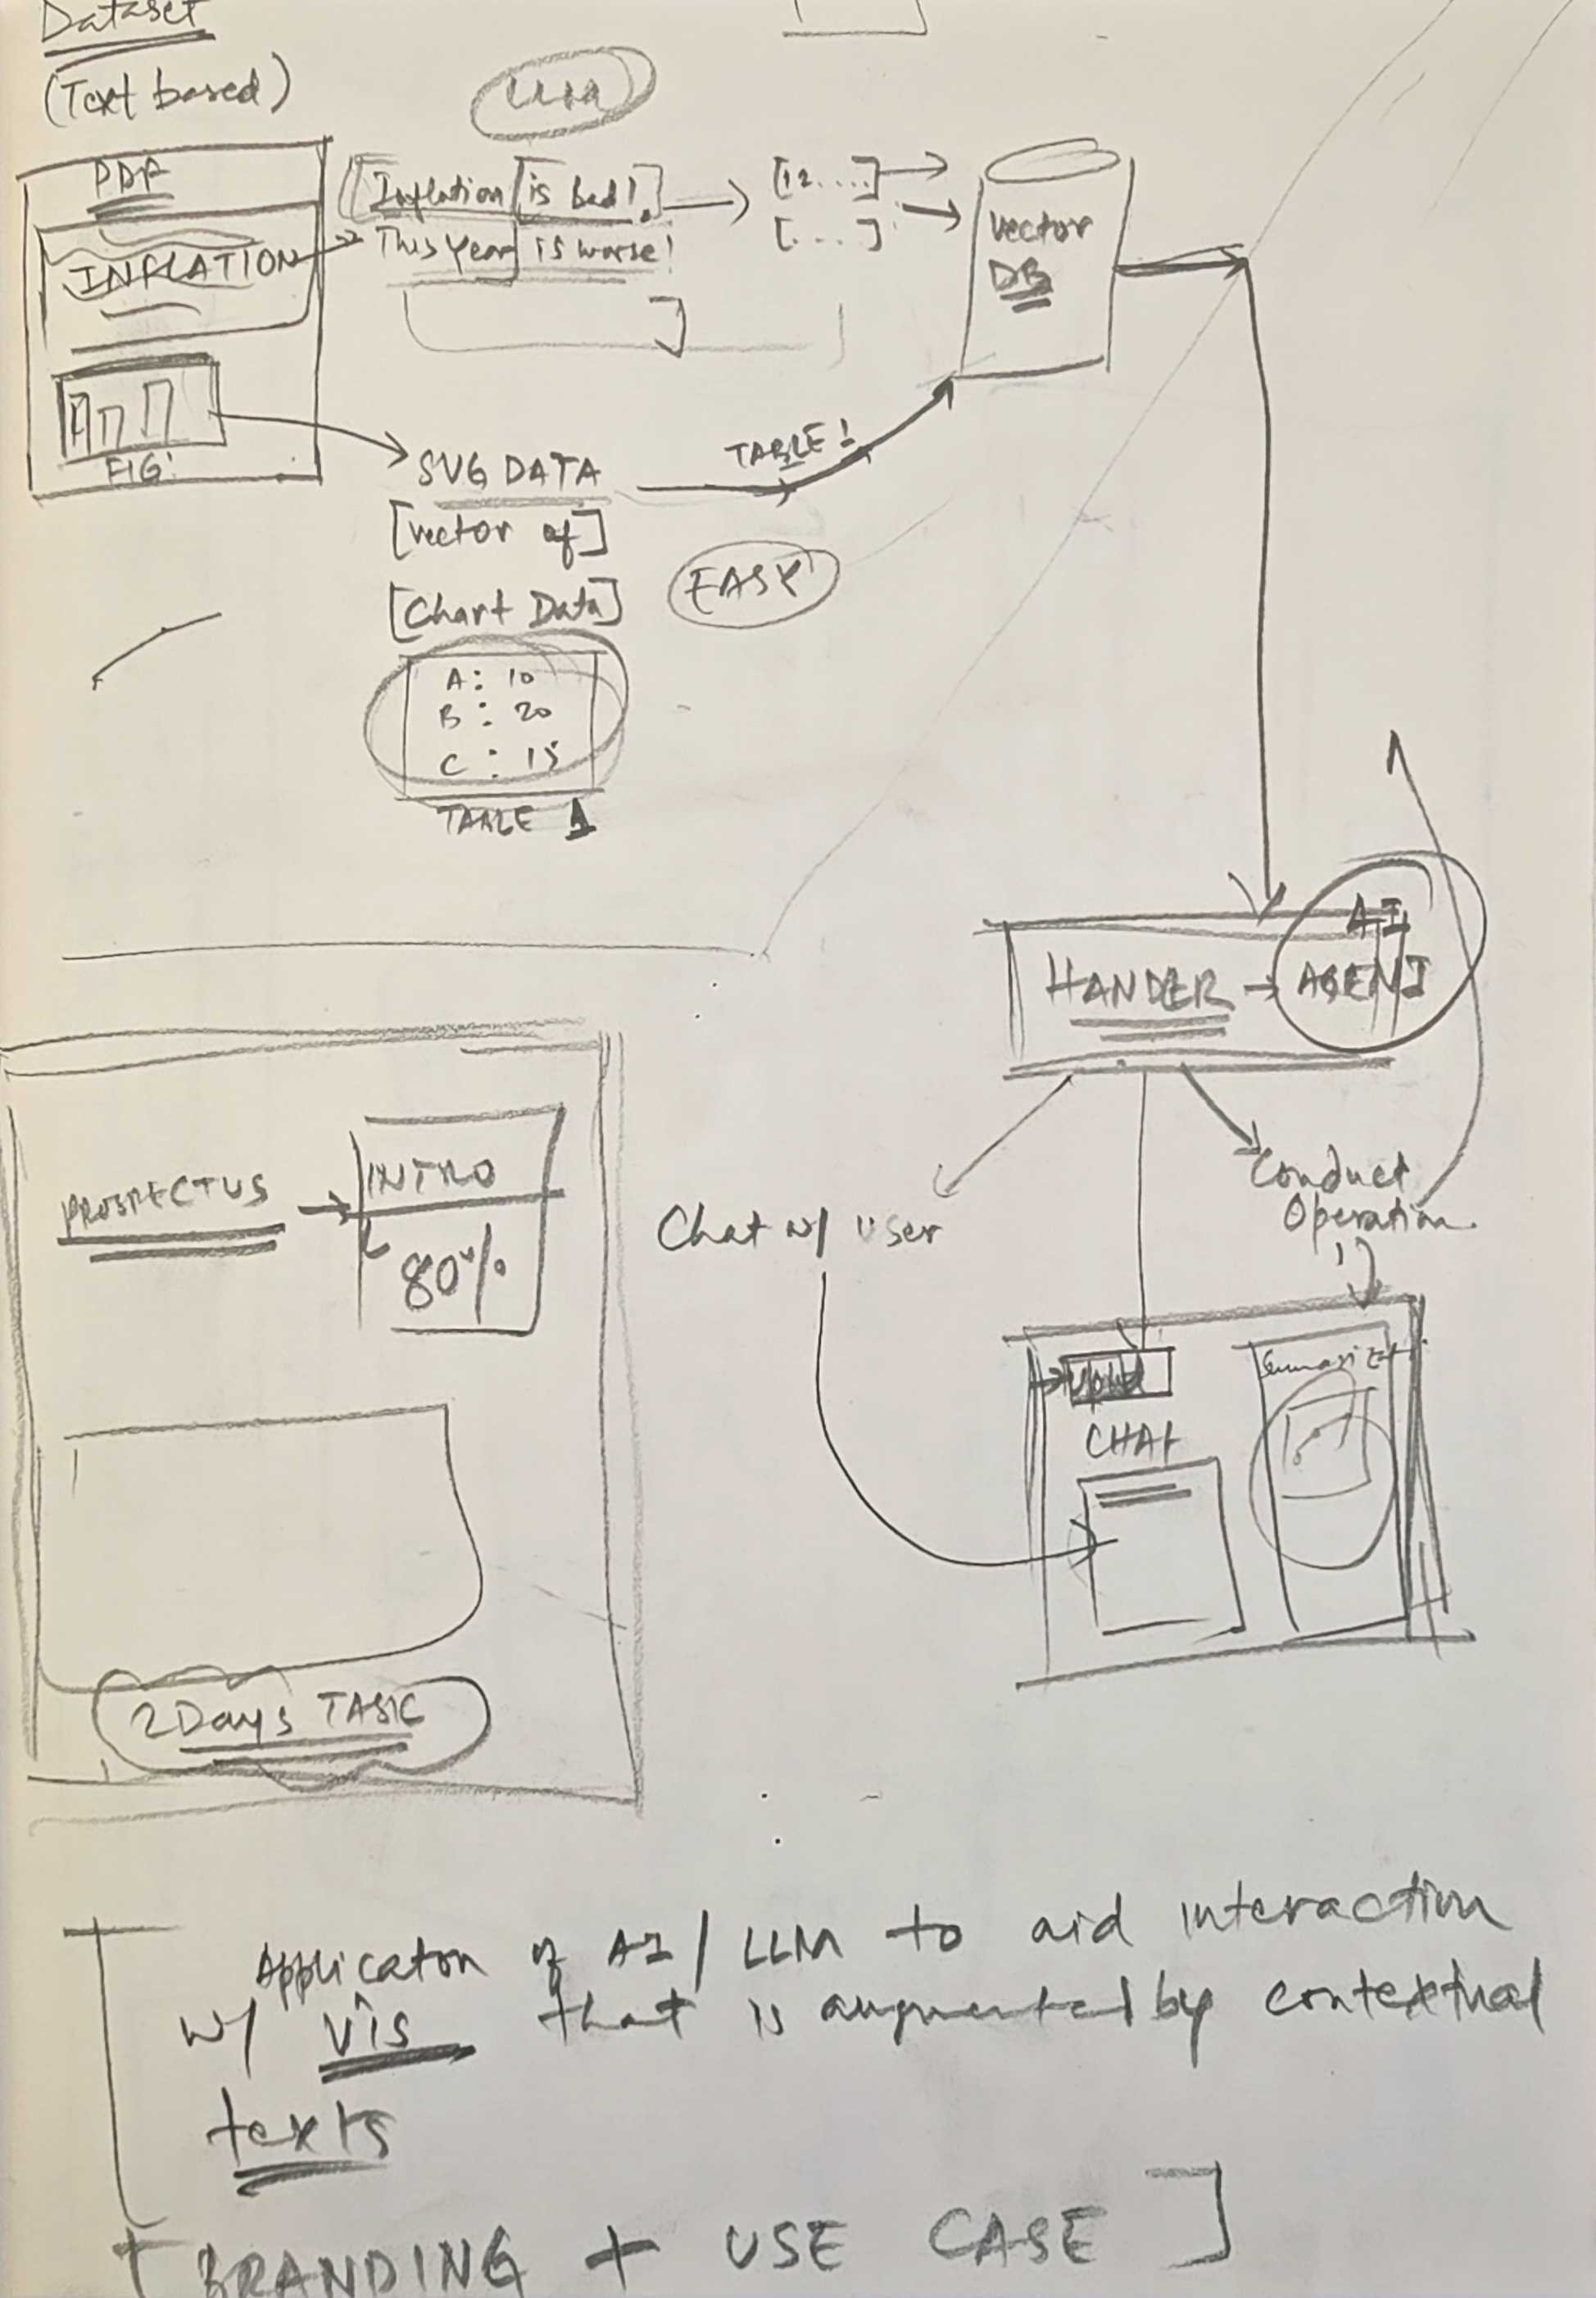 Dataset
(Text based)
PDF
INFLATION
FIG:
[Inflation [is bad!]
This Year] is worse!
]
[12....]
[....]
Vector
DB
SVG DATA
[vector of]
[Chart Data]
TABLE!
EASY
A: 10
B: 20
C: 15
TABLE 1
HANDER → AI
AGENT
Chat w/ User
Conduct
Operation
PROSPECTUS → INTRO
80%
CHAT
2 Days TASK
Applicaton of AI / LLM to aid interaction
w/ vis that is augmented by contextual
texts
[BRANDING + USE CASE]